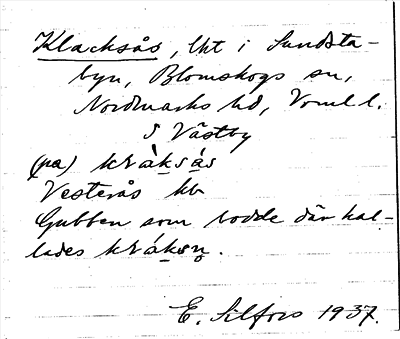 Klacksås, lht i Sundsta-
byn, Blomskogs sn,
Nordmarks hd, Vrml l.
S Västby
(pa) kràksás
Vesterås hb
Gubben som bodde där kal-
lades kráksn̥.
E. Silfors 1937.